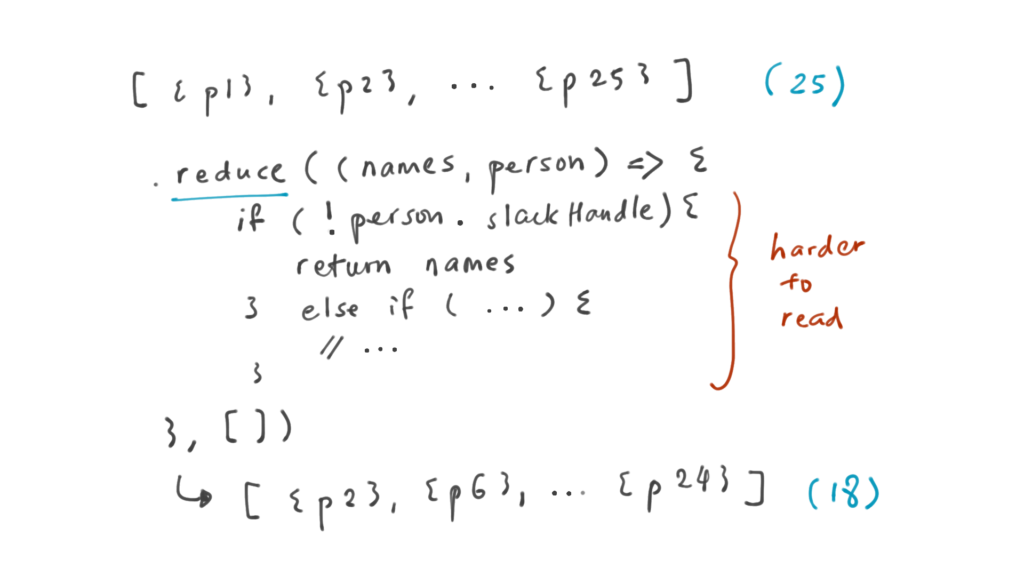 [ {p1}, {p2}, ... {p25} ] (25)
.reduce((names, person) => {
if (!person.slackHandle) {
return names
} else if ( ... ) {
// ...
}
}, [])
harder
to
read
↳ [ {p2}, {p6}, ... {p24} ] (18)